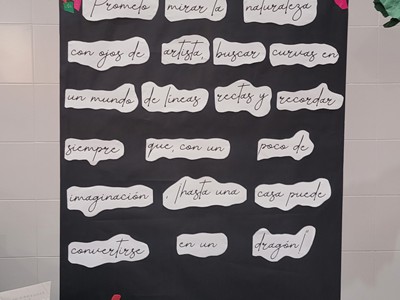 Prometo mirar la naturaleza
con ojos de artista, buscar curvas en
un mundo de líneas rectas y recordar
siempre que, con un poco de
imaginación, ¡hasta una casa puede
convertirse en un dragón!